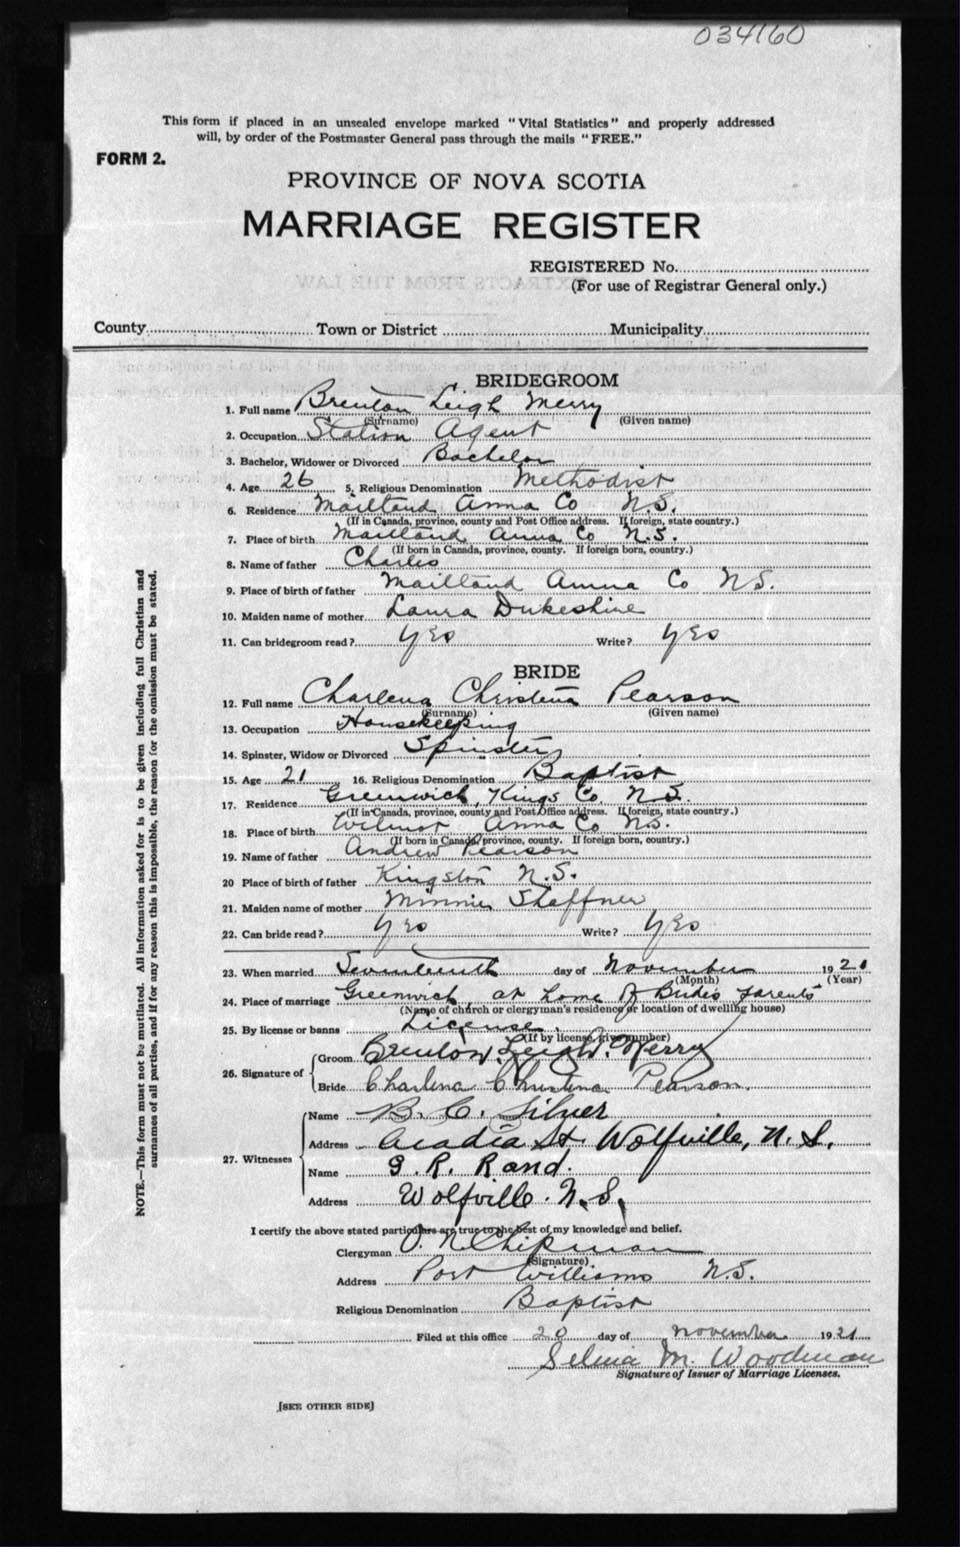 034160
This form if placed in an unsealed envelope marked "Vital Statistics" and properly addressed
will, by order of the Postmaster General pass through the mails "FREE."
FORM 2.
PROVINCE OF NOVA SCOTIA
MARRIAGE REGISTER
REGISTERED No.
(For use of Registrar General only.)
County Town or District Municipality
BRIDEGROOM
1. Full name Brenton Leigh Merry
(Surname) (Given name)
2. Occupation Station Agent
3. Bachelor, Widower or Divorced Bachelor
4. Age 26 5. Religious Denomination Methodist
6. Residence Maitland Anna Co N.S.
(If in Canada, province, county and Post Office address. If foreign, state country.)
7. Place of birth Maitland Anna Co N.S.
(If born in Canada, province, county. If foreign born, country.)
8. Name of father Charles
9. Place of birth of father Maitland Anna Co N.S.
10. Maiden name of mother Laura Dukeshire
11. Can bridegroom read? Yes Write? Yes
BRIDE
12. Full name Charlena Christena Pearson
(Surname) (Given name)
13. Occupation Housekeeping
14. Spinster, Widow or Divorced Spinster
15. Age 21 16. Religious Denomination Baptist
17. Residence Greenwich, Kings Co. N.S.
(If in Canada, province, county and Post Office address. If foreign, state country.)
18. Place of birth Wilmot Anna Co N.S.
(If born in Canada, province, county. If foreign born, country.)
19. Name of father Andrew Pearson
20 Place of birth of father Kingston N.S.
21. Maiden name of mother Minnie Shaffner
22. Can bride read? Yes Write? Yes
23. When married Seventeenth day of November 1921
(Month) (Year)
24. Place of marriage Greenwich, at home of Brides parents
(Name of church or clergyman's residence or location of dwelling house)
25. By license or banns License
(If by license, give number)
26. Signature of Groom Brenton Leigh Merry
Bride Charlena Christena Pearson.
27. Witnesses Name B. C. Silver
Address Acadia St. Wolfville, N. S.
Name G. R. Rand.
Address Wolfville. N. S.
I certify the above stated particulars are true to the best of my knowledge and belief.
Clergyman O. N. Chipman
(Signature)
Address Port Williams N.S.
Religious Denomination Baptist
Filed at this office 20 day of November 1921
Selina M. Woodman
Signature of Issuer of Marriage Licenses.
[SEE OTHER SIDE]
NOTE.—This form must not be mutilated. All information asked for is to be given including full Christian and
surnames of all parties, and if for any reason this is impossible, the reason for the omission must be stated.